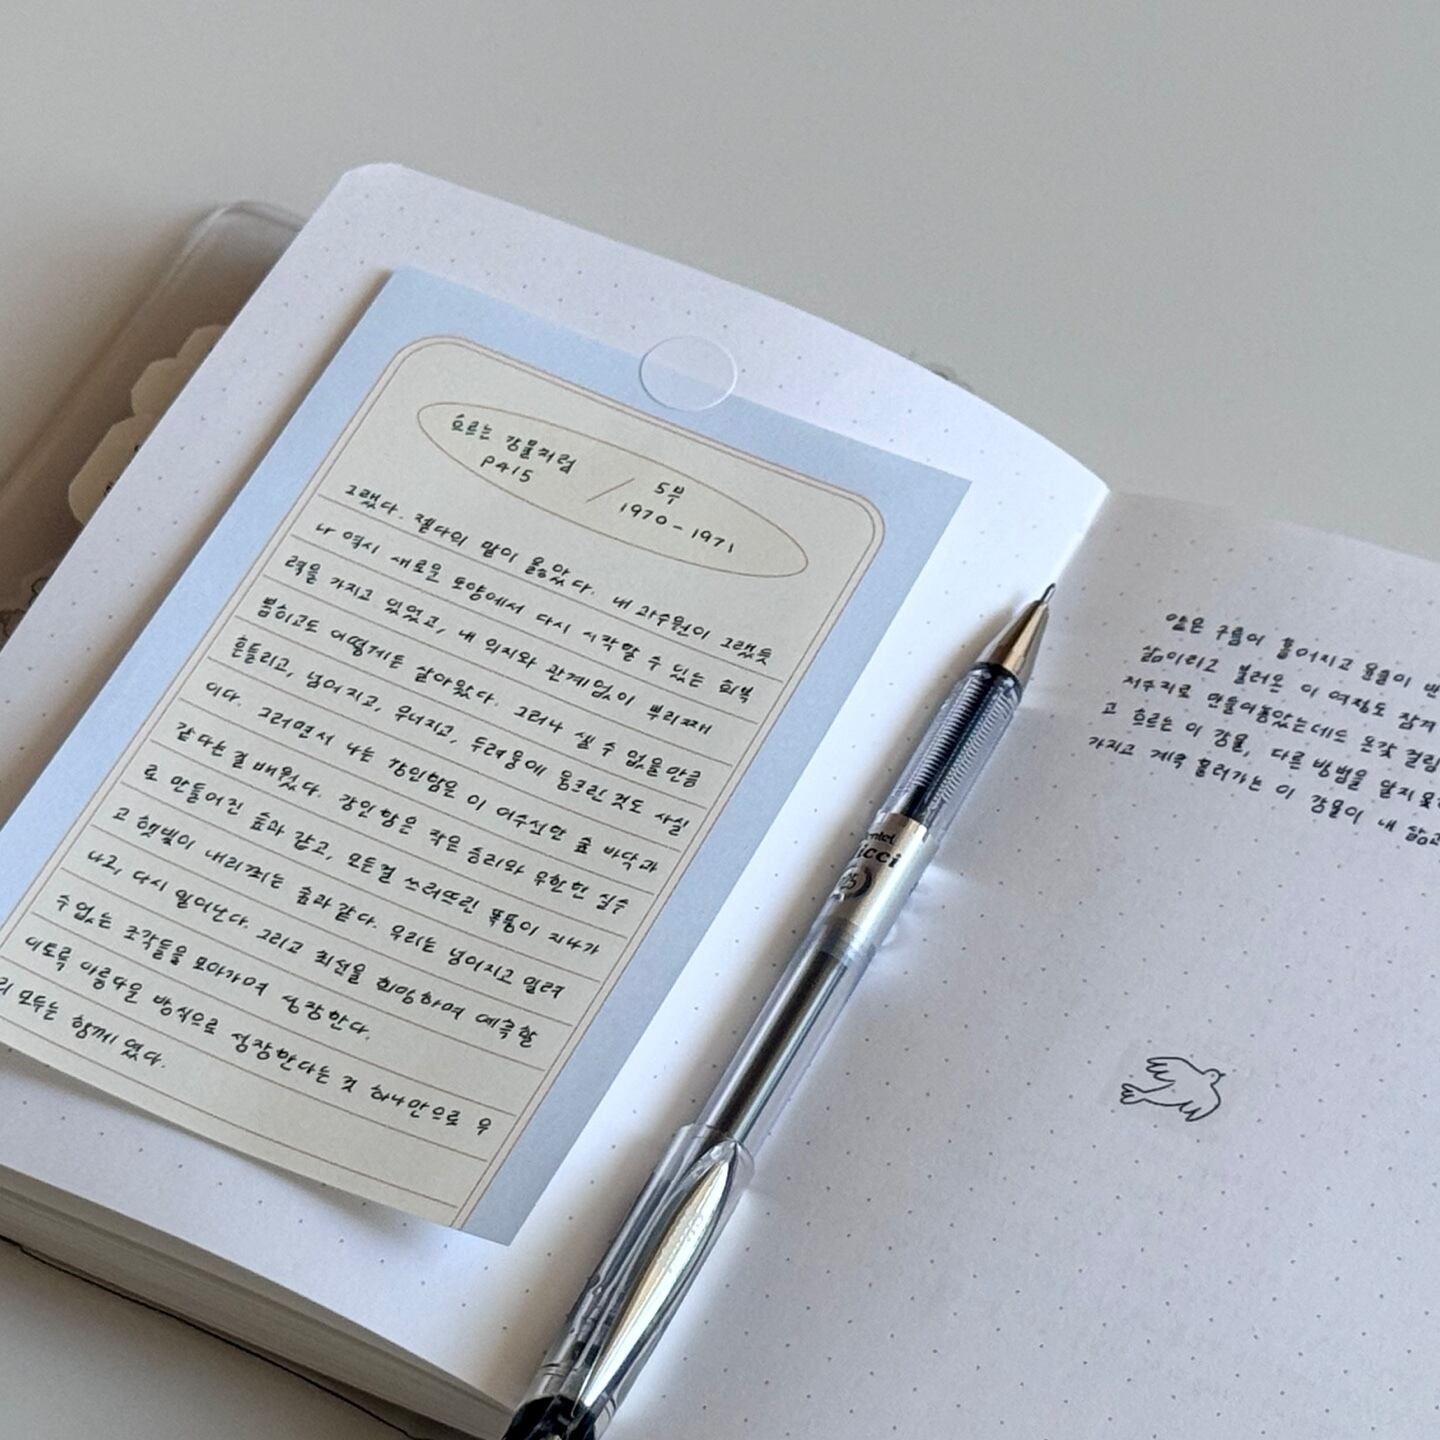 흐르는 강물처럼
p415
5부
1970-1971
그랬다. 젤다의 말이 옳았다. 내 과수원이 그랬듯
나 역시 새로운 토양에서 다시 시작할 수 있는 회복
력을 가지고 있었고, 내 의지와 관계없이 뿌리째
뽑히고도 어떻게든 살아왔다. 그러나 셀 수 없을 만큼
흔들리고, 넘어지고, 무너지고, 두려움에 웅크린 것도 사실
이다. 그러면서 나는 강인함은 이 어수선한 숲 바닥과
같다는 걸 배웠다. 강인함은 작은 승리와 무한한 실수
로 만들어진 숲과 같고, 모든 걸 쓰러뜨린 폭풍이 지나가
고 햇빛이 내리쬐는 숲과 같다. 우리는 넘어지고 밀려
나고, 다시 일어난다. 그리고 최선을 희망하며 예측할
수 없는 조각들을 모아가며 성장한다.
이토록 아름다운 방식으로 성장한다는 것 하나만으로 우
리 모두는 함께였다.
얕은 구름이 흩어지고 울음이
삶이라고 불러온 이 여정도 잠겨
저수지로 만들어놓았는데도 온갖 걸림
고 흐르는 이 강물, 다른 방법을 알지 못
가지고 계속 흘러가는 이 강물이 내 삶
Pentel